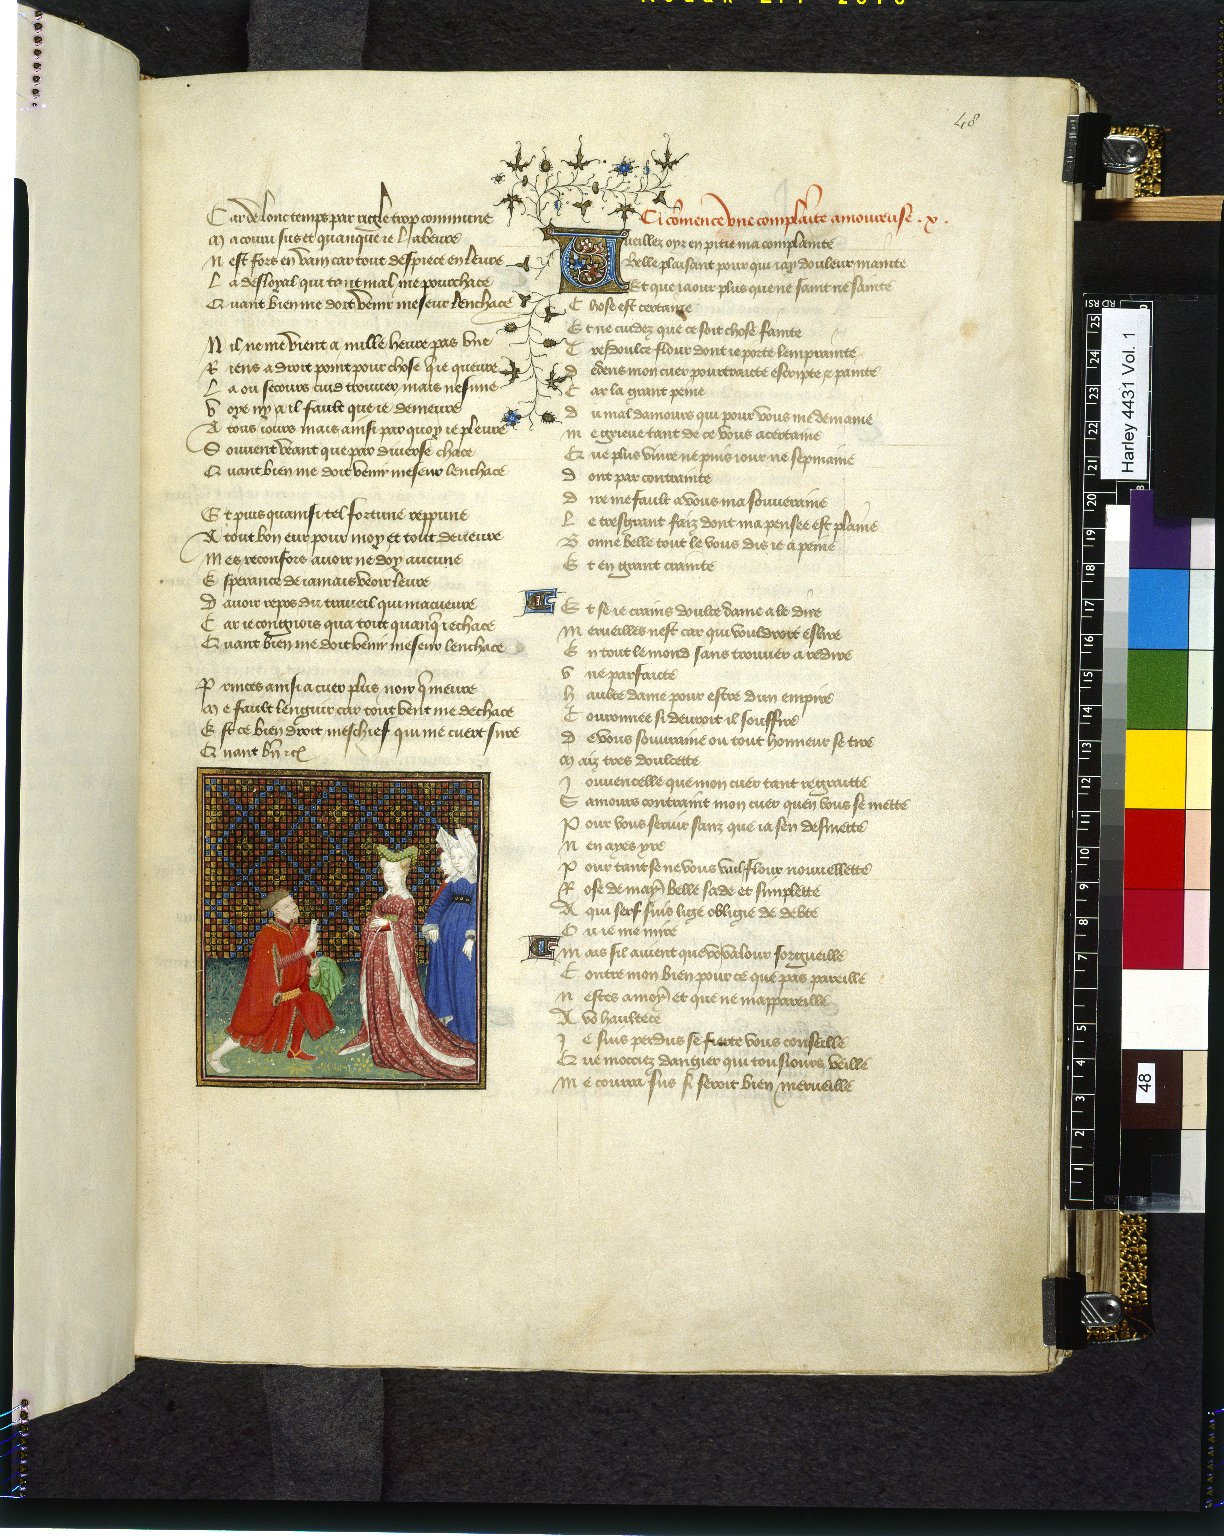 48
Car de lonc temps par regle trop commune
M a couru sus et quanque ie labeure
N est fors en vain car tout despiece en leure
L a desloyal qui tant mal me pourchace
Quant bien me doit venir meseur lenchace
N il ne me vient a mille heure pas vne
R iens a droit point pour chose q̃ ie queure
L a ou secours cuid trouuer mais nesune
V oye ny a il fault que ie demeure
A tous iours mais ainsi par quoy ie pleure
S ouuent veant que par diuerse chace
Q uant bien me doit venir meseur lenchace
E t puis quainsi tel fortune repprime
A tout bon eur pour moy et tout deueure
M es reconfors auoir ne doy aucune
E sperance de iamais veoir leure
D auoir repos du traueil qui macueure
C ar ie congnois qua tout quanq̃ ie chace
Q uant bien me doit venir meseur lenchace
P rinces ainsi a cuer plus noir q̃ meure
M e fault lenguir car tout vent me dechace
E st ce bien droit meschief qui me cuert seure
Q uant bñ ⁊cͣ
Ci cõmence vne complainte amoureuse . x .
Vueillez oyr en pitie ma complainte
Belle plaisant pour qui iay douleur mainte
Et que iaour plus que ne saint ne sainte
C hose est certaine
E t ne cuidez que ce soit chose fainte
T resdoulce flour dont ie porte lempainte
D edens mon cuer pourtraicte escripte ⁊ painte
C ar la grant peine
D u mal damours qui pour vous me demaine
M e grieue tant de ce vous acertaine
Q ue plus viure ne puis iour ne sepmaine
D ont par contrainte
D ire me fault a vous ma souueraine
L e tresgrant faiz dont ma pensee est plaine
B onne belle tout le vous dis ie a peine
E t en grant crainte
E t se ie crains doulce dame a le dire
M erueilles nest car qui vouldroit eslire
E n tout le mond sans trouuer a redire
V ne parfaicte
H aulte dame pour estre dun empire
C ouronnee si deuroit il souffire
D e vous souuraine ou tout honneur se tire
M aiz tres doulcette
J ouuencelle que mon cuer tant regraitte
S amours contraint mon cuer quen vous se mette
P our vous seruir sanz que ia sen desmette
N en ayes yre
P our tant se ne vous vail flour nouuellette
R ose de may belle sade et simplette
A qui serf suis lige obligie de debte
O u ie me mire
M ais sil auient que vo valour sorgueille
C ontre mon bien pour ce que pas pareille
N estes a moy et que ne mappareille
A vo haultece
J e suis perdus se fierte vous conseille
Q ue mocciez dangier qui tousiours veille
M e courra sus si seroit bien merueille
Harley 4431 Vol. 1
48
25
24
23
22
21
20
19
18
17
16
15
14
13
12
11
10
9
8
7
6
5
4
3
2
1